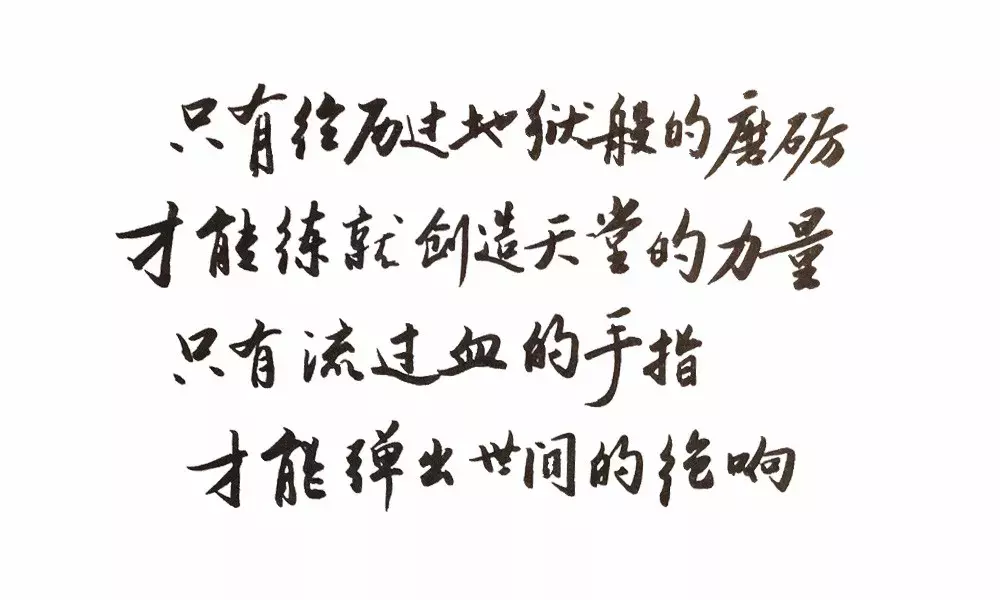 只有经历过地狱般的磨砺
才能练就创造天堂的力量
只有流过血的手指
才能弹出世间的绝响